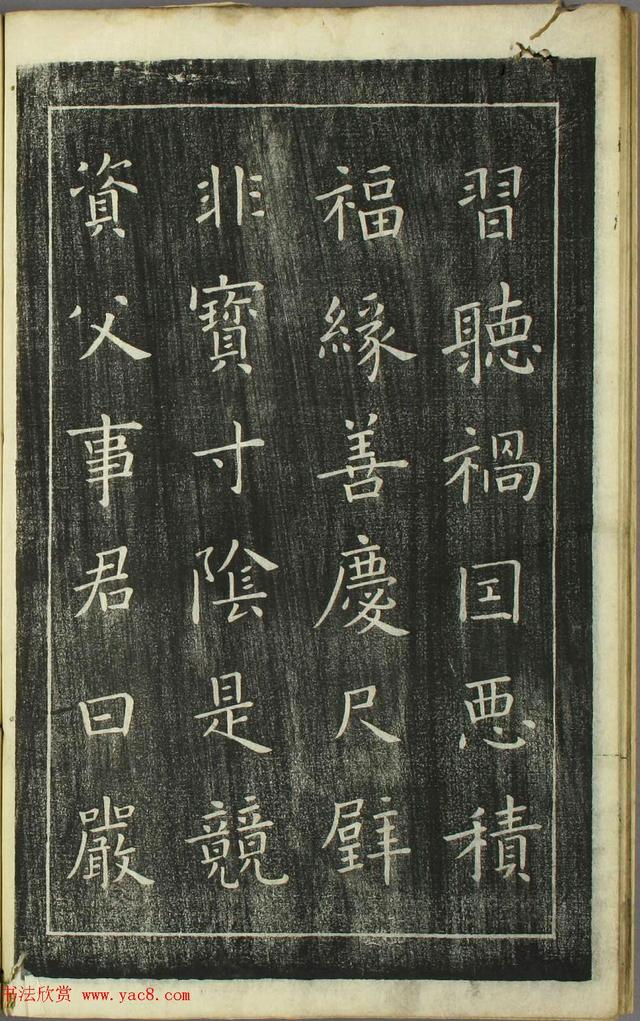 習聽禍囙惡積
福緣善慶尺璧
非寶寸陰是競
資父事君曰嚴
书法欣赏 www.yac8.com